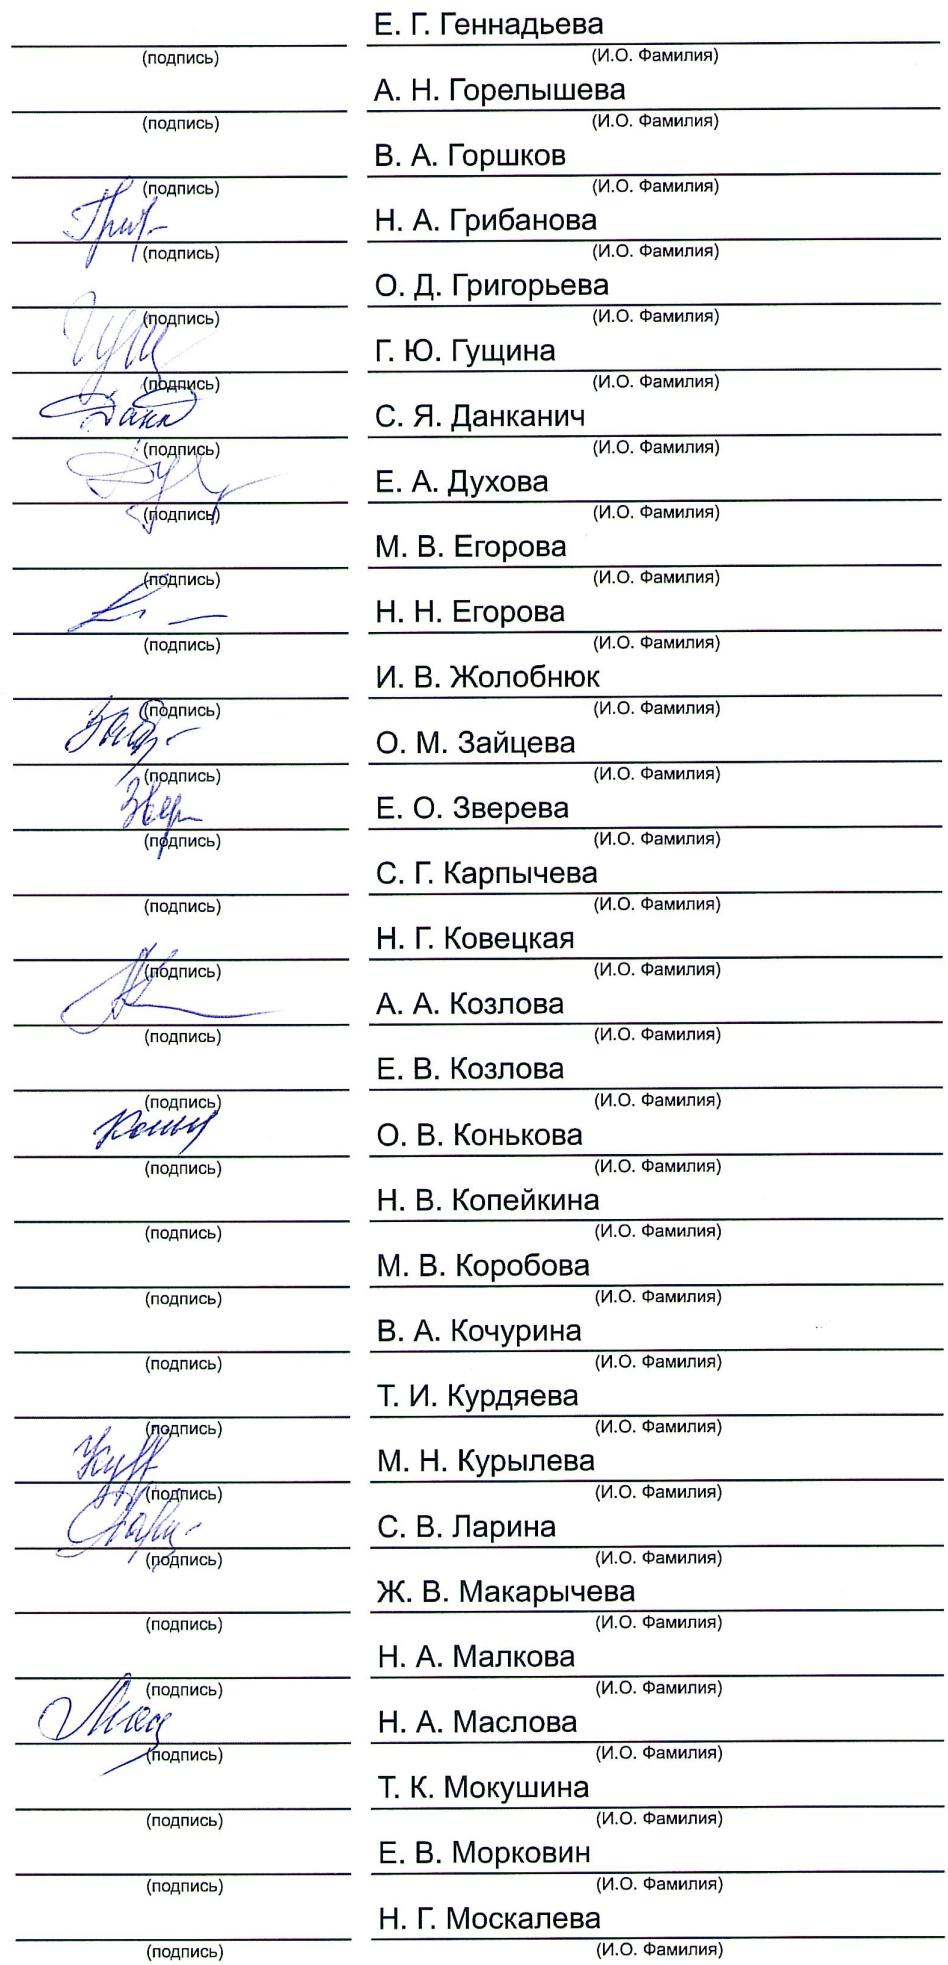 Е. Г. Геннадьева
(подпись) (И.О. Фамилия)
А. Н. Горелышева
(подпись) (И.О. Фамилия)
В. А. Горшков
(подпись) (И.О. Фамилия)
Н. А. Грибанова
(подпись) (И.О. Фамилия)
О. Д. Григорьева
(подпись) (И.О. Фамилия)
Г. Ю. Гущина
(подпись) (И.О. Фамилия)
С. Я. Данканич
(подпись) (И.О. Фамилия)
Е. А. Духова
(подпись) (И.О. Фамилия)
М. В. Егорова
(подпись) (И.О. Фамилия)
Н. Н. Егорова
(подпись) (И.О. Фамилия)
И. В. Жолобнюк
(подпись) (И.О. Фамилия)
О. М. Зайцева
(подпись) (И.О. Фамилия)
Е. О. Зверева
(подпись) (И.О. Фамилия)
С. Г. Карпычева
(подпись) (И.О. Фамилия)
Н. Г. Ковецкая
(подпись) (И.О. Фамилия)
А. А. Козлова
(подпись) (И.О. Фамилия)
Е. В. Козлова
(подпись) (И.О. Фамилия)
О. В. Конькова
(подпись) (И.О. Фамилия)
Н. В. Копейкина
(подпись) (И.О. Фамилия)
М. В. Коробова
(подпись) (И.О. Фамилия)
В. А. Кочурина
(подпись) (И.О. Фамилия)
Т. И. Курдяева
(подпись) (И.О. Фамилия)
М. Н. Курылева
(подпись) (И.О. Фамилия)
С. В. Ларина
(подпись) (И.О. Фамилия)
Ж. В. Макарычева
(подпись) (И.О. Фамилия)
Н. А. Малкова
(подпись) (И.О. Фамилия)
Н. А. Маслова
(подпись) (И.О. Фамилия)
Т. К. Мокушина
(подпись) (И.О. Фамилия)
Е. В. Морковин
(подпись) (И.О. Фамилия)
Н. Г. Москалева
(подпись) (И.О. Фамилия)